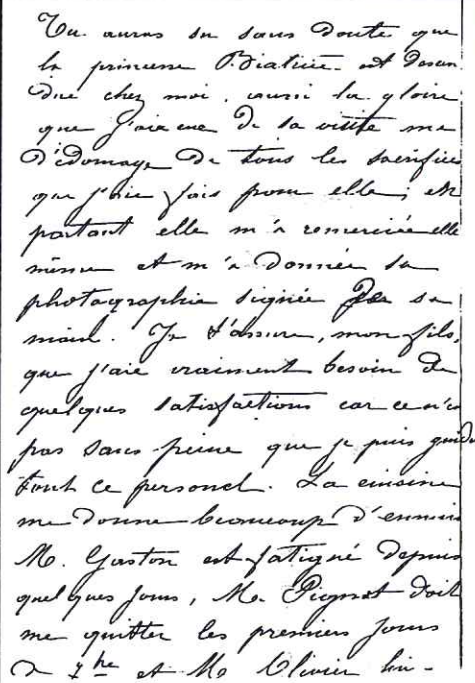 Tu auras su sans doute que
la princesse Biatrice est desan
due chez moi, aussi la gloire
que j'aie eue de sa visite me
d'édomage de tous les sacrifices
que j'aie fais pour elle, et
partant elle m'a remerciée elle
même et m'a donnée sa
photographie signée de sa
main. Je t'assure, mon fils,
que j'aie vraiment besoin de
quelques satisfactions car ce n'es
pas sans peine que je puis guide
tout ce personel. La cuisine
me donne beaucoup d'ennuis
M. Gaston est fatigué depuis
quelques jours, M. doit
me quitter les premiers jours
de 7bre et M. Olivier lui-